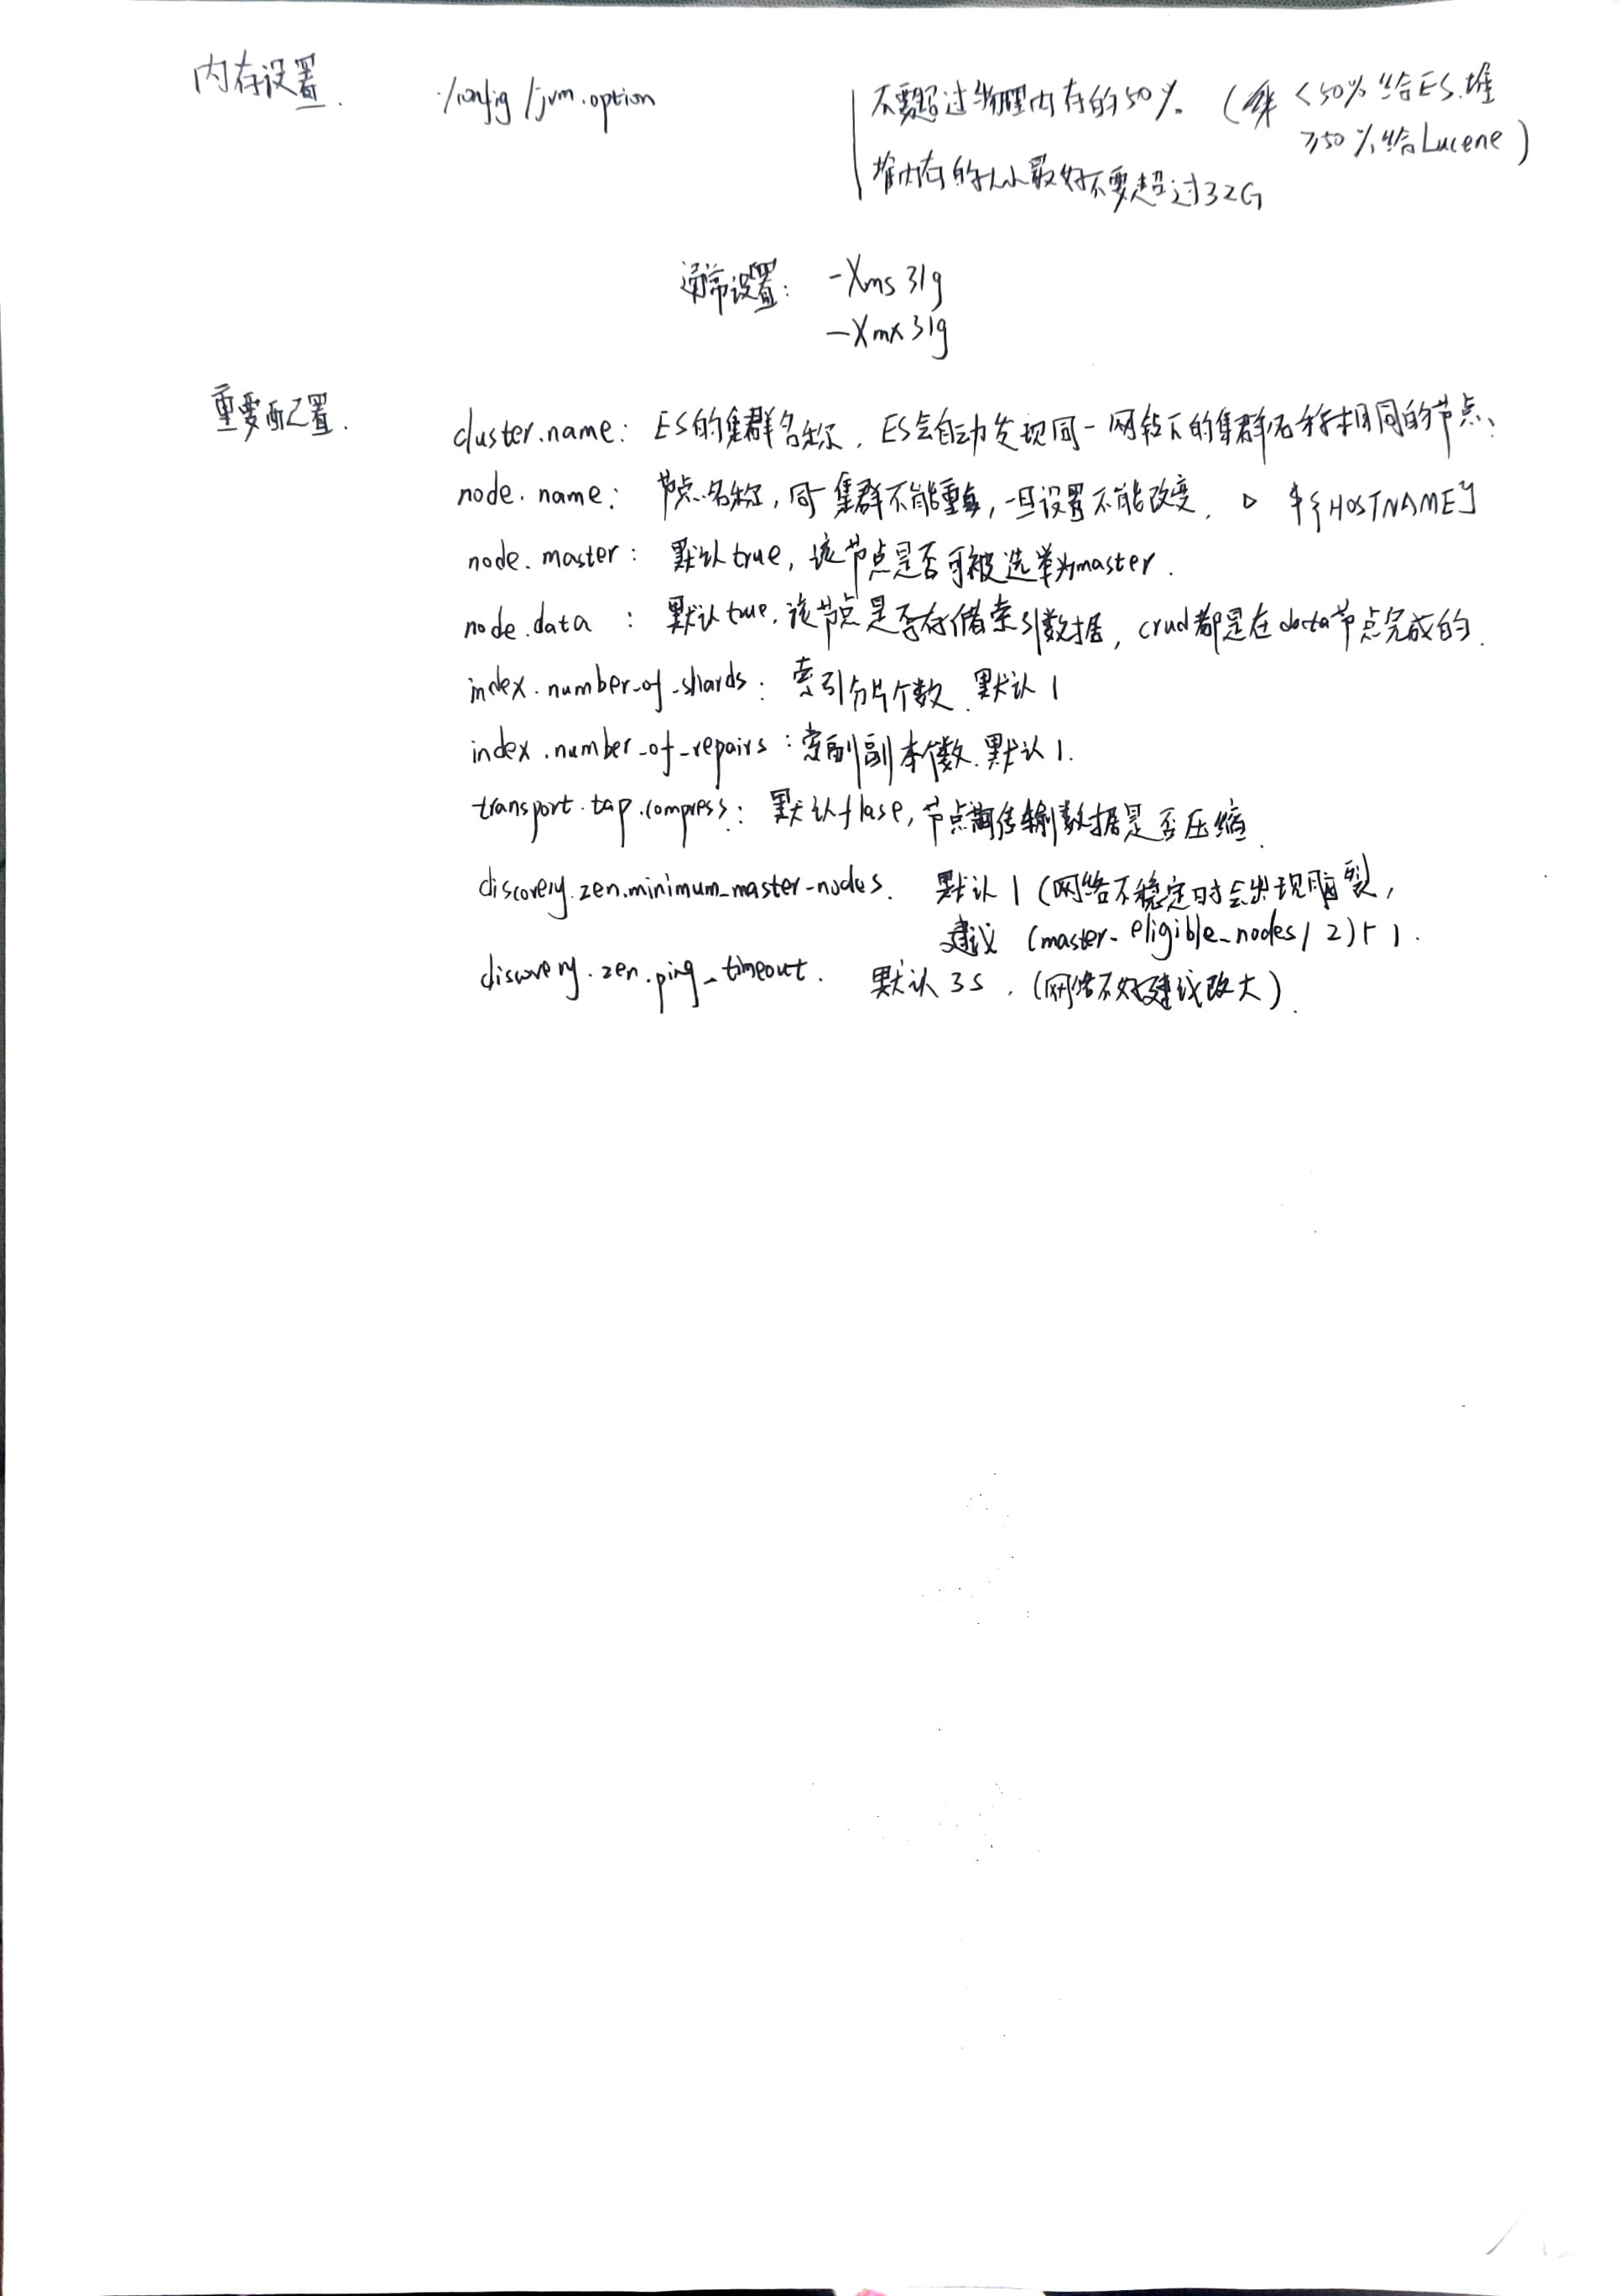 内存设置.
./config/jvm.option
不要超过物理内存的50%。 ( <50%给ES.堆
≥50%给Lucene)
堆内存的大小最好不要超过32G
通常设置: -Xms 31g
-Xmx 31g
重要配置.
cluster.name: ES的集群名称, ES会自动发现同一网络下的集群名称相同的节点、
node.name: 节点名称, 同一集群不能重复, 一旦设置不能改变. ▷ ${HOSTNAME}
node.master: 默认true, 该节点是否可被选举为master.
node.data : 默认true, 该节点是否存储索引数据, crud都是在data节点完成的.
index.number_of_shards: 索引分片个数. 默认1
index.number_of_repairs: 索引副本个数. 默认1.
transport.tap.compress: 默认flase, 节点间传输数据是否压缩.
discovery.zen.minimum_master-nodes. 默认1 (网络不稳定时会出现脑裂,
建议 (master-eligible_nodes/2)+1.
discovery.zen.ping_timeout. 默认3s. (网络不好建议改大).